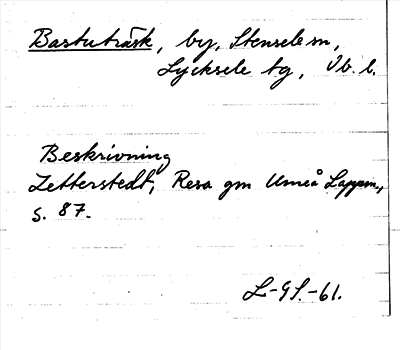 Bastuträsk, by, Stensele sn,
Lycksele tg, Vb. l.
Beskrivning
Zetterstedt, Resa gm Umeå Lappm.,
s. 87.
L-GS.-61.